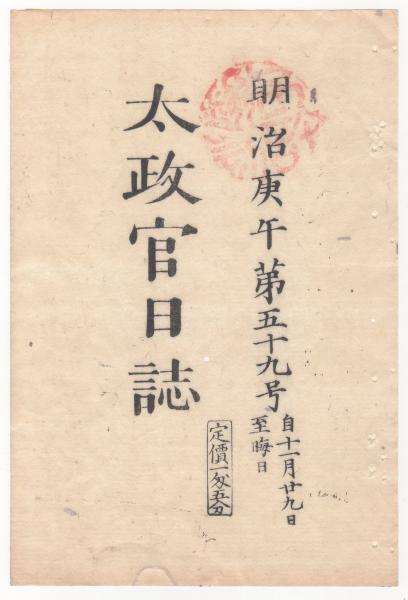 明治庚午第五十九号
自十一月廿九日
至晦日
太政官日誌
定價一匁五分